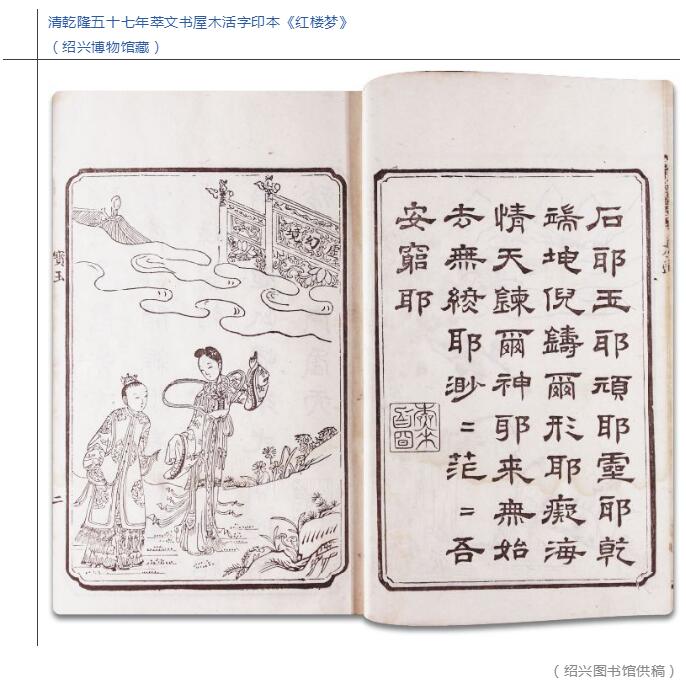 清乾隆五十七年萃文书屋木活字印本《红楼梦》
（绍兴博物馆藏）
石耶玉耶頑耶靈耶乾
端坤倪鑄爾形耶癡海
情天鍊爾神耶来無始
去無終耶渺〻茫〻吾
安窮耶
虛幻境
寶玉
二
（绍兴图书馆供稿）